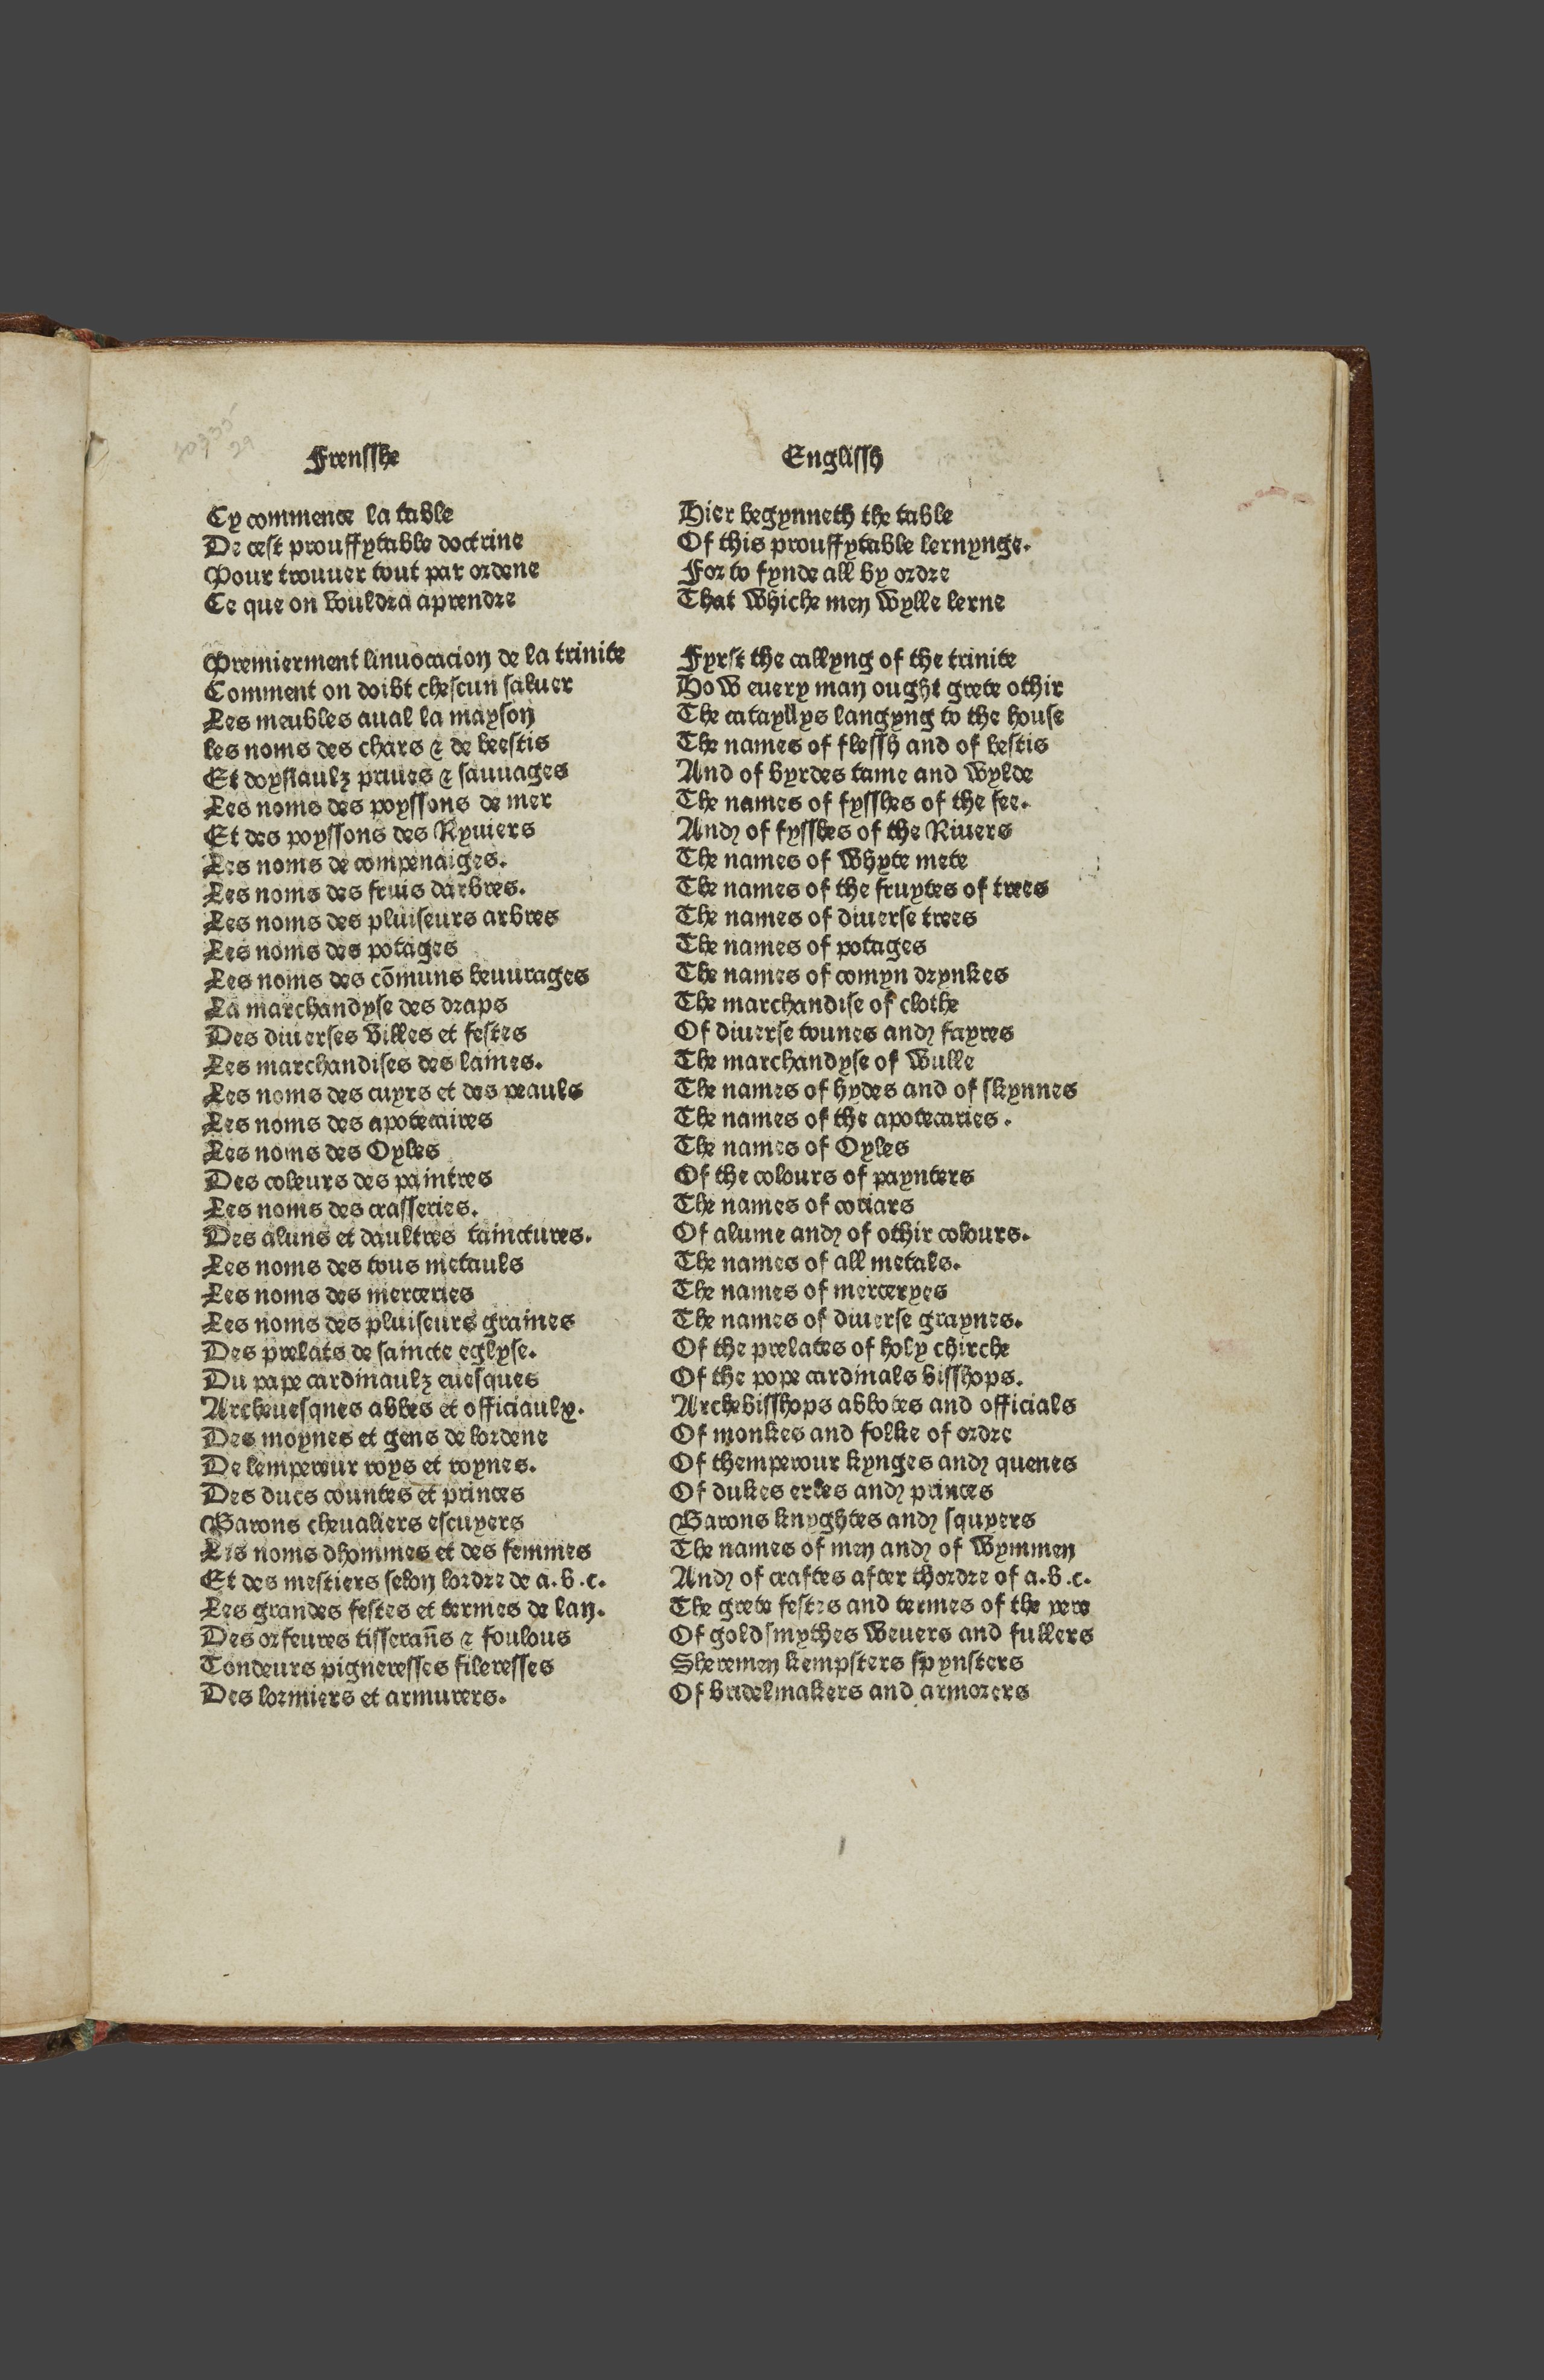 Frensshe
Cy commence la table
De cest prouffytable doctrine
Pour trouuer tout par ordene
Ce que on vouldra aprendre
Premierment linuocacion de la trinite
Comment on doibt chescun saluer
Les meubles aual la mayson
les noms des chars & de beestis
Et doysiaulz priues & sauuages
Les noms des poyssons de mer
Et des poyssons des Ryuiers
Les noms de compenaiges.
Les noms des fruis darbres.
Les noms des pluiseurs arbres
Les noms des potages
Les noms des cōmuns beuurages
La marchandyse des draps
Des diuerses villes et festes
Les marchandises des laines.
Les noms des cuyrs et des peauls
Les noms des apotecaires
Les noms des Oyles
Des coleurs des paintres
Les noms des crasseries.
Des aluns et daultres tainctures.
Les noms des tous metauls
Les noms des merceries
Les noms des pluiseurs graines
Des prelats de saincte eglyse.
Du pape cardinaulz euesques
Archeuesqnes abbes et officiaulx.
Des moynes et gens de lordene
De lempereur roys et roynes.
Des ducs countes et princes
Barons cheualiers escuyers
Les noms dhommes et des femmes
Et des mestiers selon lordre de a.b.c.
Les grandes festes et termes de lan.
Des orfeures tisserañs & foulous
Tondeurs pigneresses fileresses
Des lormiers et armurers.
Englissh
Hier begynneth the table
Of this prouffytable lernynge.
For to fynde all by ordre
That whiche men wylle lerne
Fyrst the callyng of the trinite
How euery man ought grete othir
The catayllys langyng to the house
The names of flessh and of bestis
And of byrdes tame and wylde
The names of fysshes of the see.
And of fysshes of the Riuers
The names of whyte mete
The names of the fruytes of trees
The names of diuerse trees
The names of potages
The names of comyn drynkes
The marchandise of clothe
Of diuerse tounes and fayres
The marchandyse of wulle
The names of hydes and of skynnes
The names of the apotecaries.
The names of Oyles
Of the colours of paynters
The names of coriars
Of alume and of othir colours.
The names of all metals.
The names of merceryes
The names of diuerse graynes.
Of the prelates of holy chirche
Of the pope cardinals bisshops.
Archebisshops abbotes and officials
Of monkes and folke of ordre
Of themperour kynges and quenes
Of dukes erles and princes
Barons knyghtes and squyers
The names of men and of wymmen
And of craftes after thordre of a.b.c.
The grete festes and termes of the yere
Of goldsmythes weuers and fullers
Sheremen kempsters spynsters
Of bridelmakers and armorers